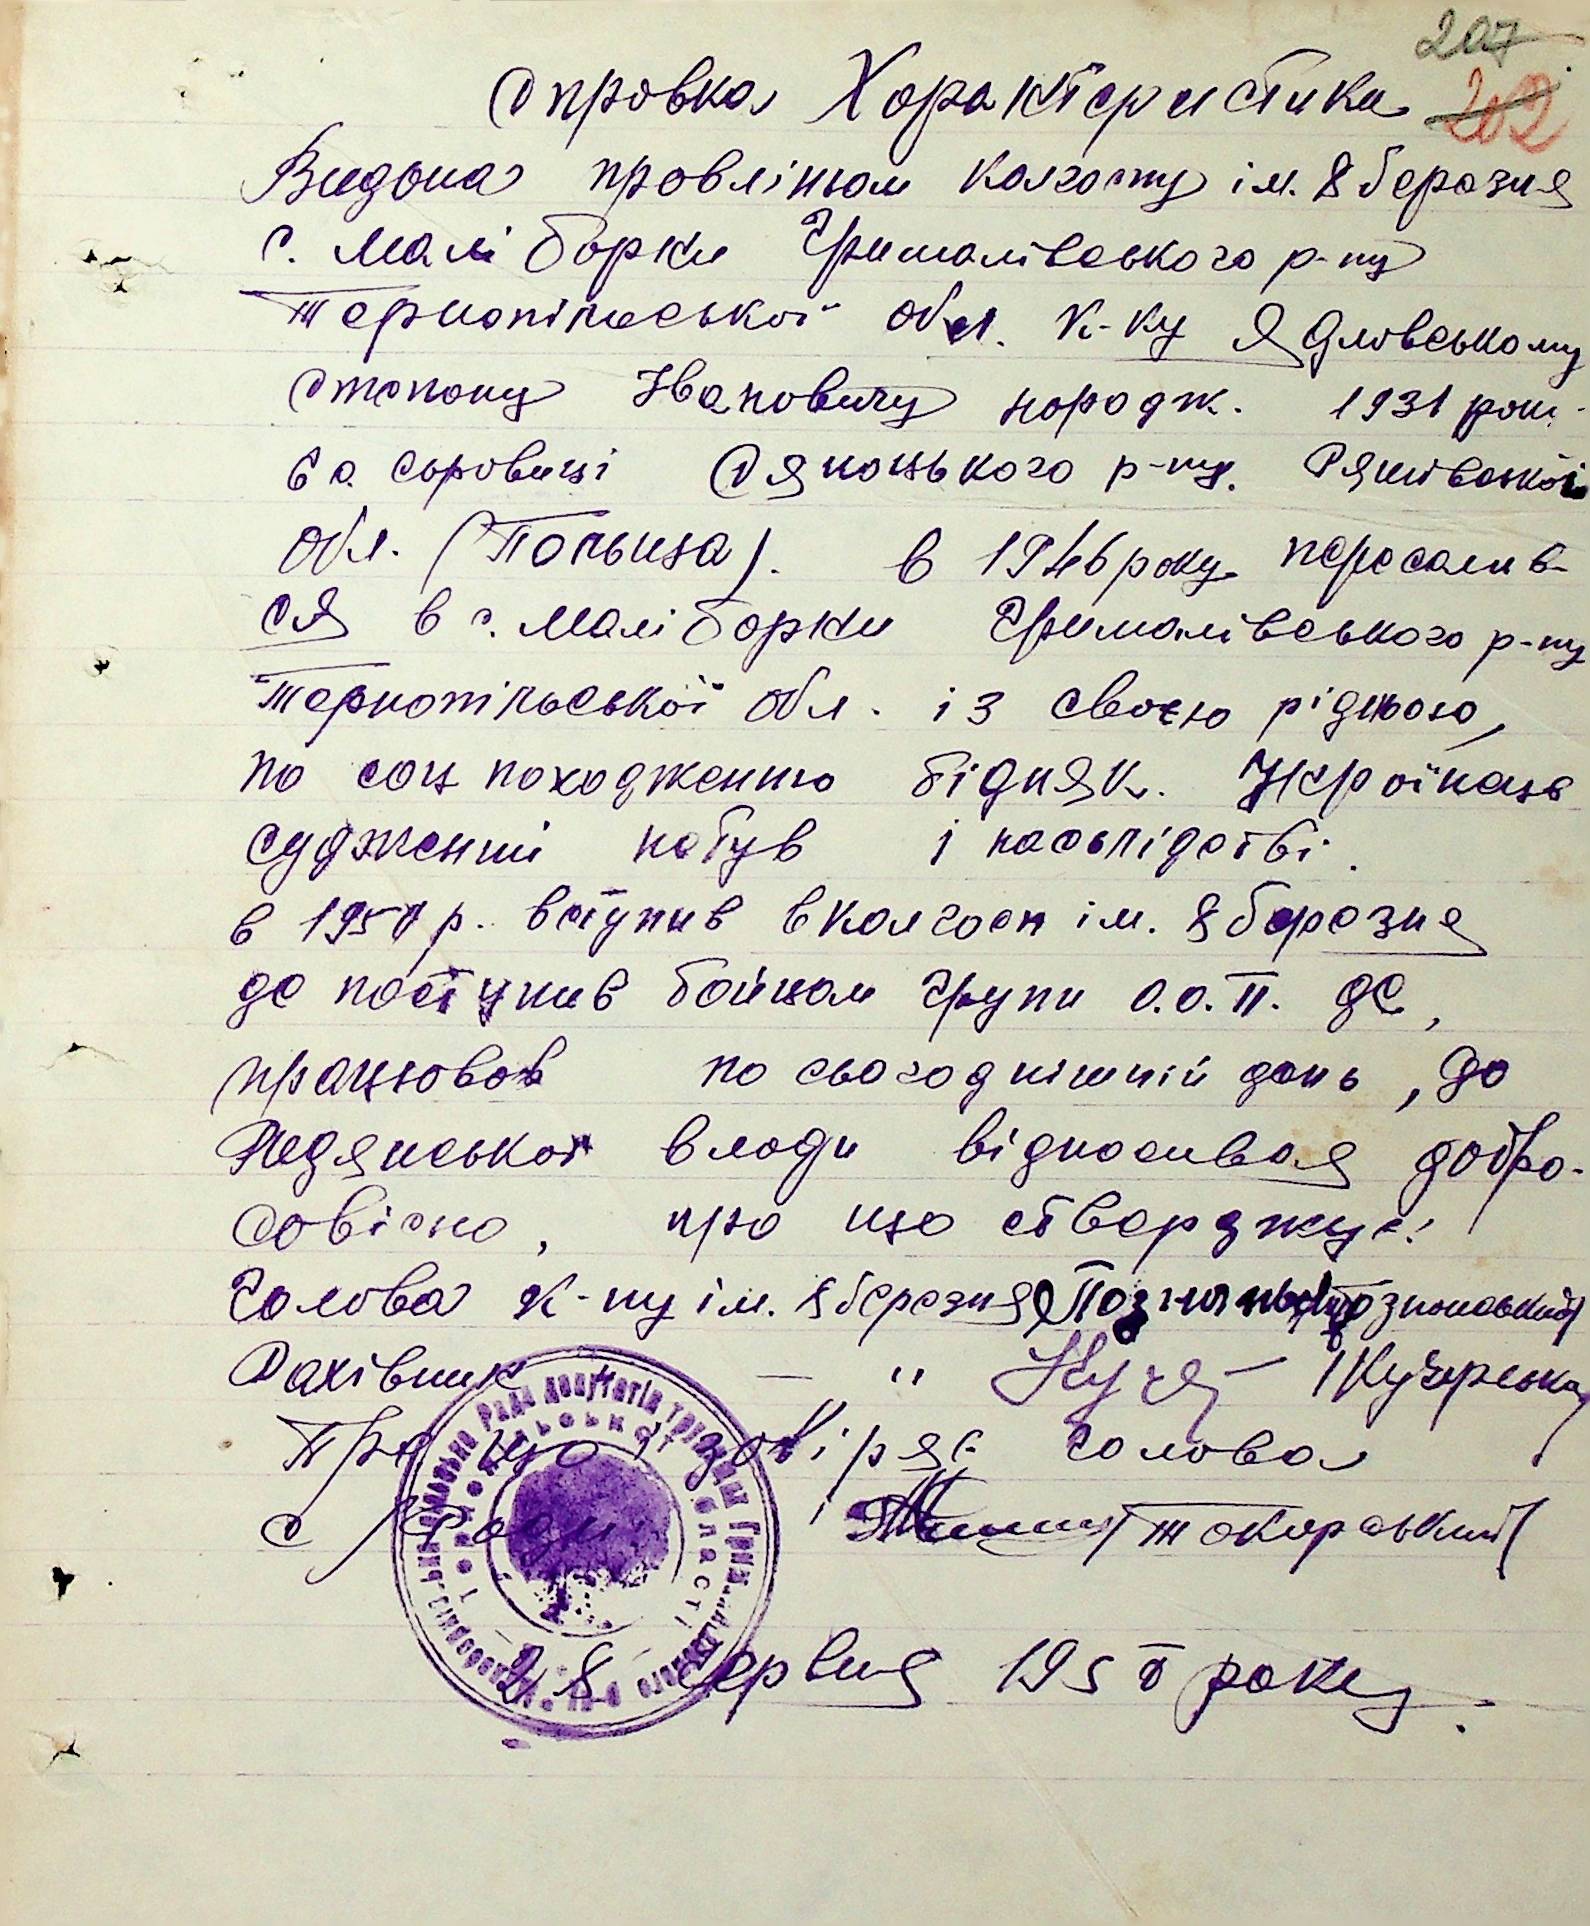 207
202
Справка Характеристика
Видана правлінам колгоспу ім. 8 березня
с. Малі Борки Грималівського р-ну
Тернопільської обл. к-ку Ядловському
Степану Івановичу народж. 1931 року
в с. Саровиці Сяноцького р-ну. Ряшівської
обл. (Польща). в 1946 року переселив-
ся в с. Малі Борки Грималівського р-ну
Тернопільської обл. із своєю рідньою,
по соц походженню бідняк. Українець
судженні не був і на сьлідстві.
в 1950 р. вступив в колгосп ім. 8 березня
де поступив бойцом групи о.о.П. де,
працював по сьогоднішній день, до
Радянської влади відносився добро-
совісно, про що стверджує:
Голова к-пу ім. 8 березня Познанський
Рахівник — " /Кучерська/
Про що і завіряє голова
с/Ради /Токарський/
28 червня 1950 року.